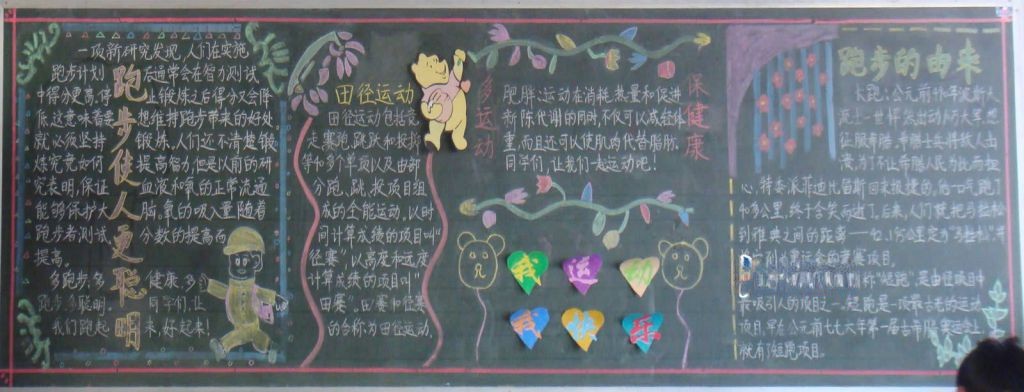 跑步使人更聪明
一项新研究发现,人们在实施
跑步计划 后通常会在智力测试
中得分更高,停 止锻炼之后得分又会降
低,这意味着要 想维持跑步带来的好处
就必须坚持 锻炼,人们还不清楚锻
炼究竟如何 提高智力,但是以前的研
究表明,保证 血液和氧的正常流通
能够保护大 脑,氧的吸入量随着
跑步者测试 分数的提高而
提高。
多跑步,多 健康,多
跑步多聪明。 同学们,让
我们跑起 来,好起来!
田径运动
田径运动包括竞
走赛跑、跳跃和投掷
等40多个单项以及由部
分跑、跳、投项目组
成的全能运动。以时
间计算成绩的项目叫“
径赛”,以高度和远度
计算成绩的项目叫“
田赛”。田赛和径赛
的合称为田径运动。
多运动
保健康
肥胖:运动在消耗热量和促进
新陈代谢的同时,不仅可以减轻体
重,而且还可以使肌肉代替脂肪,
同学们,让我们一起运动吧!
我运动
我快乐
跑步的由来
长跑:公元前490年波斯人
征服希腊,希腊士兵
心,特委派菲迪比留斯回来报捷的,他一口气跑了
40多公里,终于含笑而逝了。后来,人们就把马拉松
到雅典之间的距离
运会的竞赛项目。
称“短跑”,是由径项目中
最吸引人的项目之一。短跑是一项最古老的运动
项目,早在公元前七七六年第一届古希腊奥运会上
就有了短跑项目。